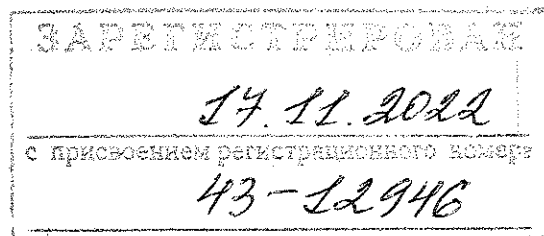 ЗАРЕГИСТРИРОВАН
17.11.2022
с присвоением регистрационного номера
43-12946